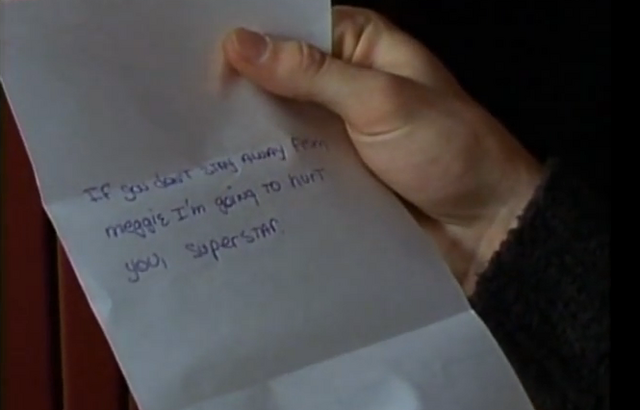 If you don't stay away from
meggie I'm going to hurt
you, superstar.